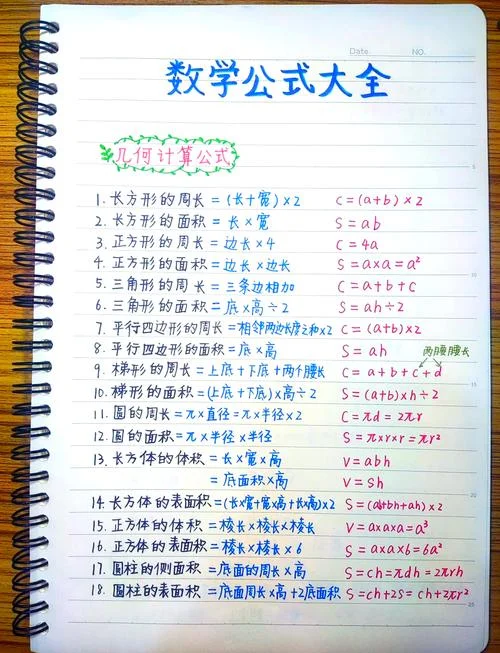 Date. NO.
数学公式大全
几何计算公式
1. 长方形的周长 = (长+宽)×2 C = (a+b)×2
2. 长方形的面积 = 长×宽 S = ab
3. 正方形的周长 = 边长×4 C = 4a
4. 正方形的面积 = 边长×边长 S = a×a = a²
5. 三角形的周长 = 三条边相加 C = a+b+c
6. 三角形的面积 = 底×高÷2 S = ah÷2
7. 平行四边形的周长 = 相邻两边长度之和×2 C = (a+b)×2
8. 平行四边形的面积 = 底×高 S = ah 两腰腰长
9. 梯形的周长 = 上底+下底+两个腰长 C = a+b+c+d
10. 梯形的面积 = (上底+下底)×高÷2 S = (a+b)×h÷2
11. 圆的周长 = π×直径 = π×半径×2 C = πd = 2πr
12. 圆的面积 = π×半径×半径 S = π×r×r = πr²
13. 长方体的体积 = 长×宽×高 V = abh
= 底面积×高 V = sh
14. 长方体的表面积 = (长×宽+宽×高+长×高)×2 S = (ab+bh+ah)×2
15. 正方体的体积 = 棱长×棱长×棱长 V = a×a×a = a³
16. 正方体的表面积 = 棱长×棱长×6 S = a×a×6 = 6a²
17. 圆柱的侧面积 = 底面的周长×高 S = ch = πdh = 2πrh
18. 圆柱的表面积 = 底面周长×高+2底面积 S = ch+2s = ch+2πr²